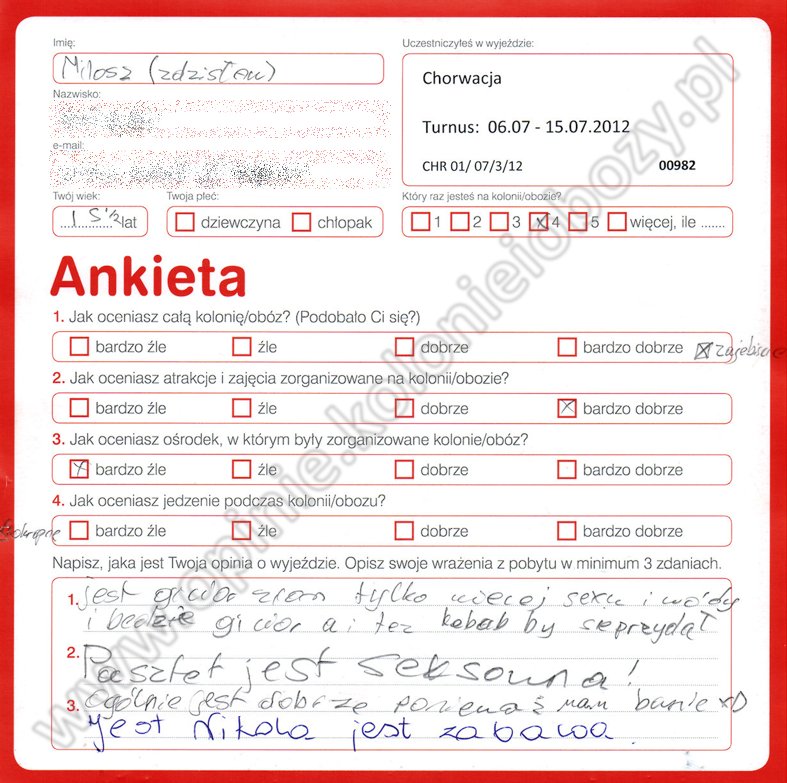 Imię:
Uczestniczyłeś w wyjeździe:
Miłosz (zdzisław)
Chorwacja
Nazwisko:
Turnus: 06.07 - 15.07.2012
e-mail:
CHR 01/ 07/3/12 00982
Twój wiek: Twoja płeć: Który raz jesteś na kolonii/obozie?
15 1/2 lat dziewczyna chłopak 1 2 3 4 5 więcej, ile .......
Ankieta
1. Jak oceniasz całą kolonię/obóz? (Podobało Ci się?)
bardzo źle źle dobrze bardzo dobrze zajebiście
2. Jak oceniasz atrakcje i zajęcia zorganizowane na kolonii/obozie?
bardzo źle źle dobrze bardzo dobrze
3. Jak oceniasz ośrodek, w którym były zorganizowane kolonie/obóz?
bardzo źle źle dobrze bardzo dobrze
4. Jak oceniasz jedzenie podczas kolonii/obozu?
okropne bardzo źle źle dobrze bardzo dobrze
Napisz, jaka jest Twoja opinia o wyjeździe. Opisz swoje wrażenia z pobytu w minimum 3 zdaniach.
1. jest gicior ziom tylko więcej sexu i wódy
i będzie gicior a i też kebab by się przydał
2. Pasztet jest seksowna!
3. ogólnie jest dobrze ponieważ mam banie xD
jest Nikola jest zabawa.
www.opinie.kolonieiobozy.pl